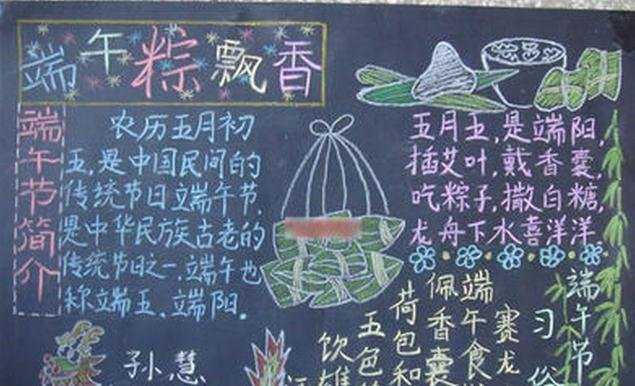 端午粽飘香
端午节简介
农历五月初
五,是中国民间的
传统节日端午节,
是中华民族古老的
传统节日之一端午也
称端五,端阳。
五月五,是端阳,
插艾叶,戴香囊,
吃粽子,撒白糖,
龙舟下水喜洋洋
端午节
习俗
赛龙
端午食
佩香囊
荷包和
五色
饮雄
孙慧